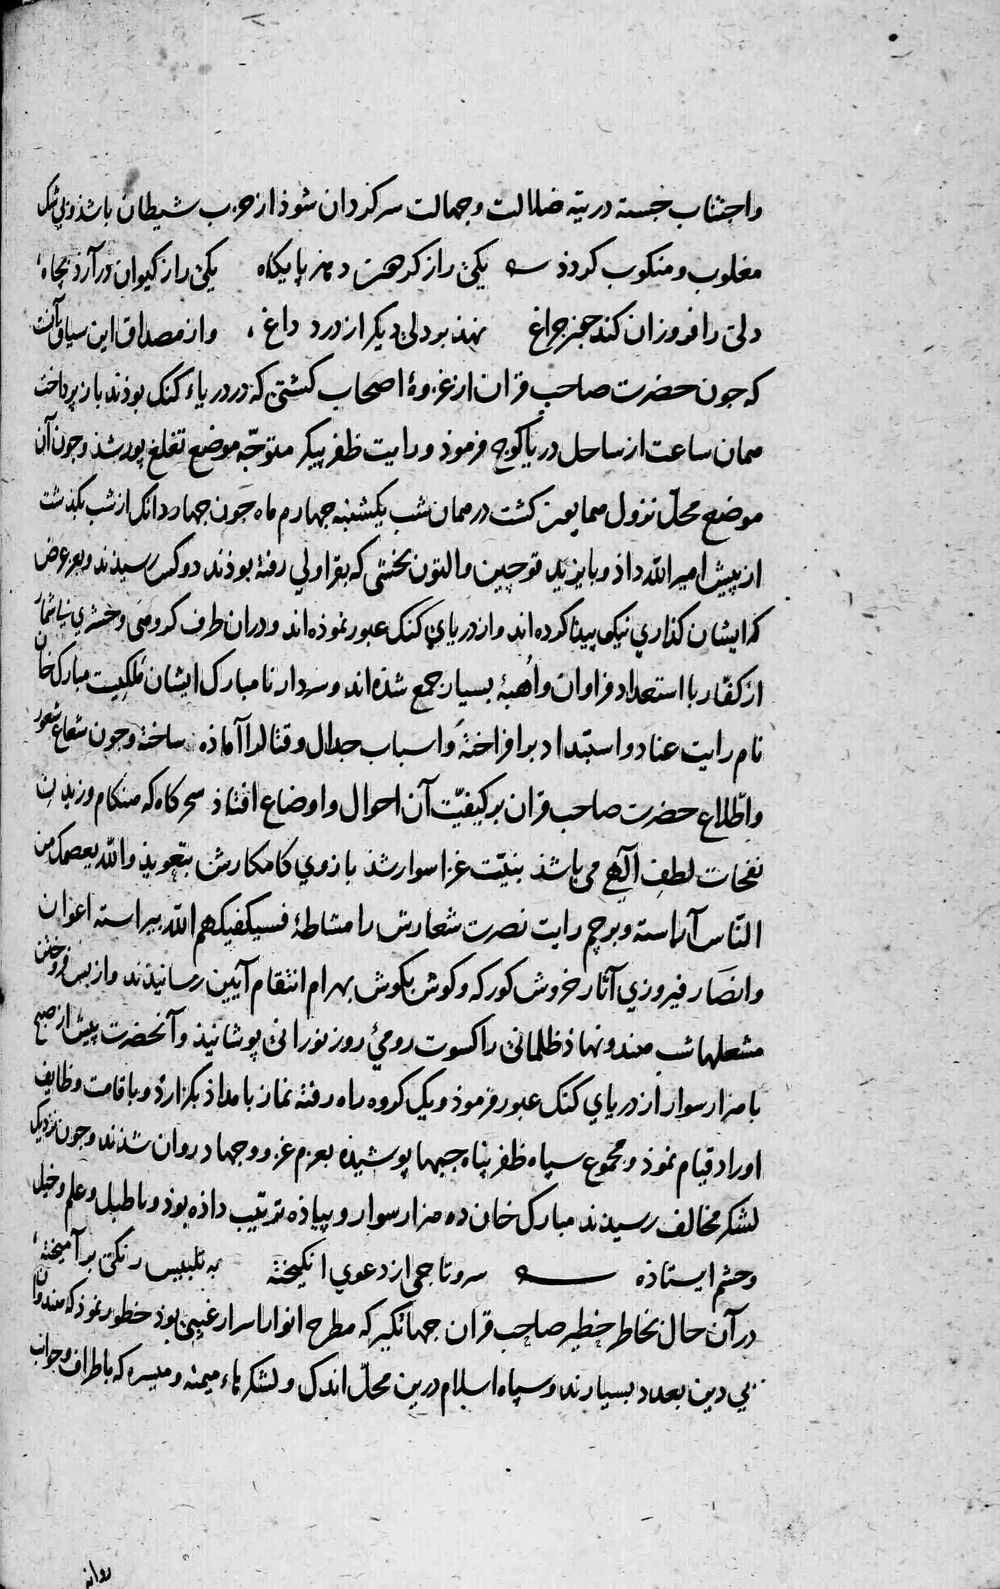 واجتناب جسته در تیه ضلالت وجهالت سرکردان شوذ از حزب شیطان باشذ وبی شک
مغلوب و منکوب کردذ یکی را زکرهت دهذ پایکاه یکی را زکیوان درآرذ بچاه
دلی را فروزان کند چون چراغ نهذ بر دلی دیکر از درد داغ و از مصداق این سیاق آنست
که جون حضرت صاحب قران از غزوهٔ اصحاب کشتی که در دریاء کنک بوذند باز پرداخت
همان ساعت از ساحل دریا کوچ فرموذ و رایت ظفر پیکر متوجّه موضع تغلغ پور شذ وجون آن
موضع محلّ نزول همایون کشت در همان شب یکشنبه جهارم ماه جون جهار دانک از شب بکذشت
از پیش امیر الله داذ و بایزید قوجین والتون بخشی که بقراولی رفته بوذند دو کس رسیذند وبعرض
که ایشان کذاری نیکو پیدا کرده اند و از دریای کنک عبور نموذه اند و در ان طرف کروهی وحشری بی شمار
از کفّار با استعداد فراوان و اُهبهٔ بسیار جمع شذه اند و سردار نامبارک ایشان مَلکیت مبارک خان
نام رایت عناد و استبداد برافراخته و اسباب جدال و قتال را آماذه ساخته وجون شعاع شعور
واطّلاع حضرت صاحب قران بر کیفیّت آن احوال و اوضاع افتاذ سحرکاه که هنکام وزیدن
نفحات لطف آلهی می باشذ بنیّت غزا سوار شذ بازوی کامکارش بتعویذ والله یعصمک من
النّاس آراسته و برجم رایت نصرت شعارش را مشاطهٔ فسیکفیکهم الله بیراسته اعوان
وانصَار فیروزی آثار خروش کورکه و کوش بکوش بهرام انتقام آیین رسانیذند و از بس فروختن
مشعلها شب هندو نهاذ ظلمانی را کسوت رومیٔ روز نورانی پوشانیذ و آنحضرت پیش از صبح
با هزار سوار از دریای کنک عبور فرموذ و یک کروه راه رفته نماز بامداذ بکزارد و باقامت وظایف
اوراد قیام نموذ و مجموع سپاه ظفر پناه جبها پوشیذه بعزم غزو وجهاد روان شذند وجون نزدیک
لشکر مخالف رسیدند مبارک خان ده هزار سوار و پیاذه ترتیب داذه بوذ و با طبل و علم وخیل
وحشم ایستاذه سر وتاجی از دعوی انکیخته به تلبیس رنکی بر آمیخته
در آن حال بخاطر خطیر صاحب قران جهانکیر که مطرح انوار اسرار غیبی بوذ خطور نموذ که هندوان
بی دین بعدد بسیارند و سپاه اسلام درین محلّ اندک و لشکرهاء میمنه و میسره که باطراف وجوانب
روانه